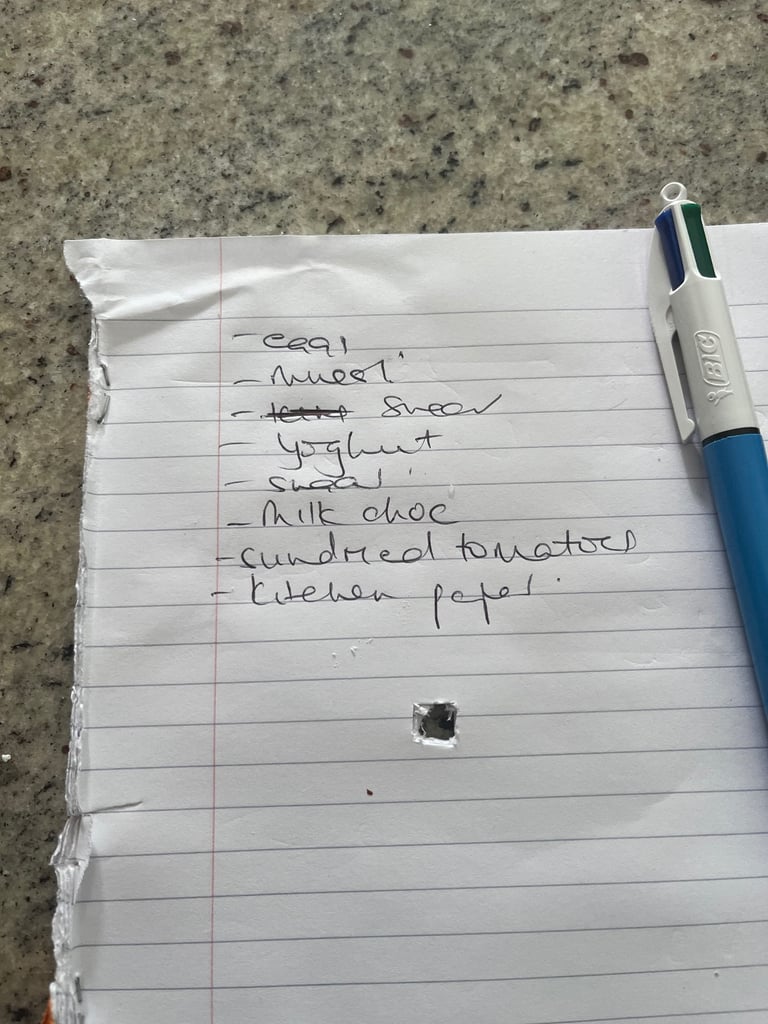 - eggs
- muesli
- sugar
- yoghurt
- milk choc
- sundried tomatoes
- kitchen paper
BIC